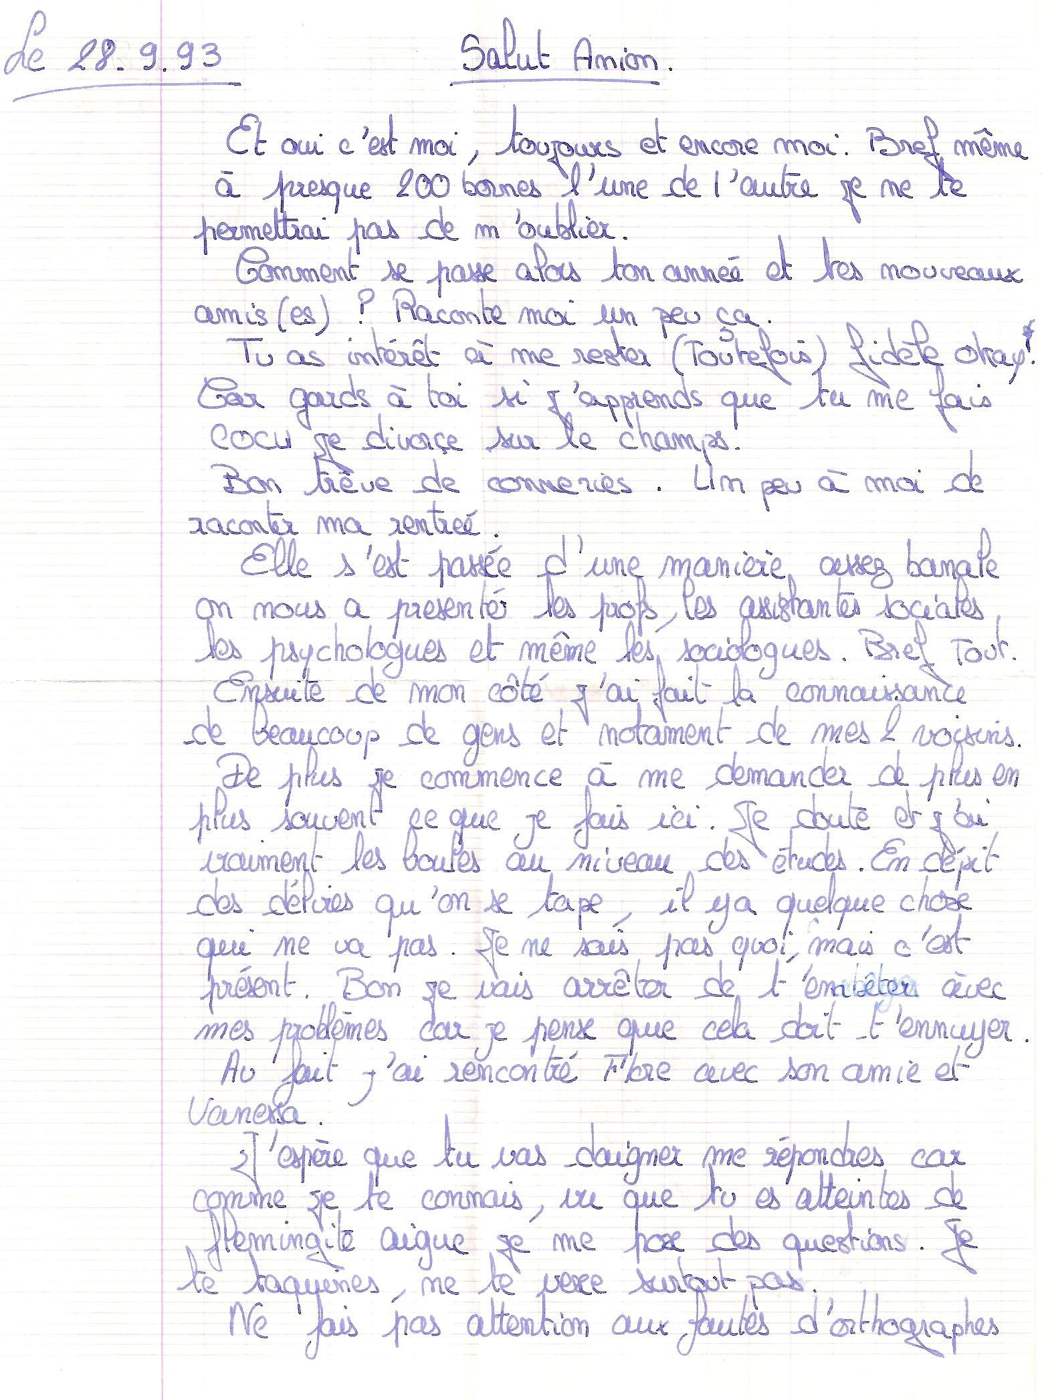 Le 28.9.93 Salut Anion.
Et oui c'est moi, toujours et encore moi. Bref même
à presque 200 bornes l'une de l'autre je ne te
permettrai pas de m'oublier.
Comment se passe alors ton année et tes nouveaux
amis(es) ? Raconte moi un peu ça.
Tu as intérêt à me rester (Toutefois) fidèle okay!
Car gards à toi si j'apprends que tu me fais
cocu je divorce sur le champs.
Bon trève de conneries. Un peu à moi de
raconter ma rentreé.
Elle s'est passée d'une manière assez banale
on nous a presenter les profs, les assistantes sociales,
les psychologues et même les sociologues. Bref Tout.
Ensuite de mon côté j'ai fait la connaissance
de beaucoup de gens et notament de mes 2 voisins.
De plus je commence à me demander de plus en
plus souvent ce que je fais ici. Je doute et j'ai
vraiment les boules au niveau des études. En dépit
des délires qu'on se tape, il y a quelque chose
qui ne va pas. Je ne sais pas quoi, mais c'est
présent. Bon je vais arrêter de t'embêter avec
mes problèmes car je pense que cela doit t'ennuyer.
Au fait j'ai rencontré Flore avec son amie et
Vanessa.
J'espère que tu vas daigner me répondres car
comme je te connais, vu que tu es atteintes de
flemingite aigue je me pose des questions. Je
te taquines, ne te vexe surtout pas.
Ne fais pas attention aux fautes d'orthographes